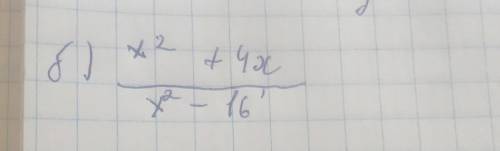 б) x² + 4x
x² - 16